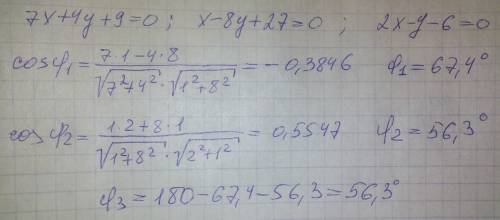 7x+4y+9=0 ; x-8y+27=0 ; 2x-y-6=0
cosφ₁= (7·1-4·8)/(√(7²+4²)·√(1²+8²)) =-0,3846 φ₁=67,4°
cosφ₂= (1·2+8·1)/(√(1²+8²)·√(2²+1²)) =0,5547 φ₂=56,3°
φ₃=180-67,4-56,3=56,3°